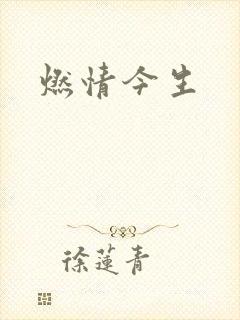 燃情今生
徐莲青